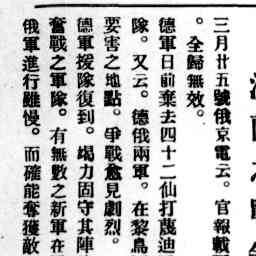 三月廿五號俄京電云。官報載
。全歸無效。
德軍日前棄去四十二仙打蔑迪
隊。又云。德俄兩軍。在黎鳥
要害之地點。爭戰愈見劇烈。
德軍援隊復到。竭力固守其陣
奮戰之軍隊。有無數之新軍在
俄軍進行雖慢。而確能奪獲敵